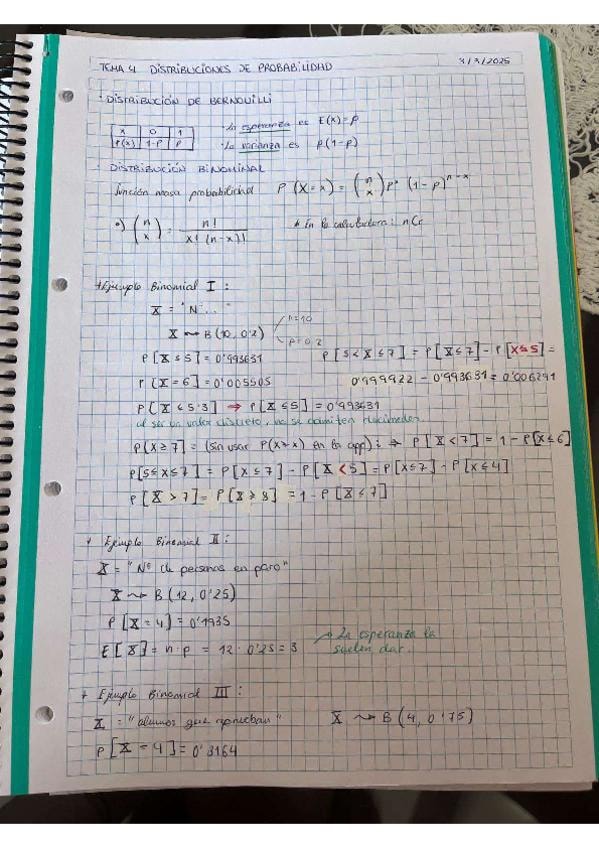 TEMA 4 DISTRIBUCIONES DE PROBABILIDAD 3/3/2025
· DISTRIBUCIÓN DE BERNOUILLI
x 0 1
P(x) 1-P P
· La esperanza es E(x)=p
· La varianza es p(1-p)
· DISTRIBUCIÓN BINOMINAL
función masa probabilidad P(X=x) = (n x) pˣ (1-p)ⁿ⁻ˣ
(n x) = n! / x!(n-x)! * En la calculadora: nCr
* Ejemplo Binomial I:
X = "Nº..."
X ~> B(10, 0'2) n=10 p=0,2
P[X ≤ 5] = 0'993631
P[5 < X ≤ 7] = P[X ≤ 7] - P[X ≤ 5] =
P[X = 6] = 0'005505
0'999922 - 0'993631 = 0'006291
P[X ≤ 5'3] → P[X ≤ 5] = 0'993631
al ser un valor discreto, no se admiten decimales.
P(X ≥ 7] = (sin usar P(X>x) en la app): ⇒ P[X < 7] = 1 - P[X ≤ 6]
P[5 ≤ X ≤ 7] = P[X ≤ 7] - P[X < 5] = P[X ≤ 7] - P[X ≤ 4]
P[X > 7] = P[X ≥ 8] = 1 - P[X ≤ 7]
* Ejemplo Binomial II:
X = "Nº de personas en paro"
X ~> B(12, 0'25)
P[X = 4] = 0'1935
E[X] = n·p = 12·0'25 = 3
→ La esperanza la
suelen dar.
* Ejemplo Binomial III:
X = "alumnos que aprueban" X ~> B(4, 0'75)
P[X = 4] = 0'3164